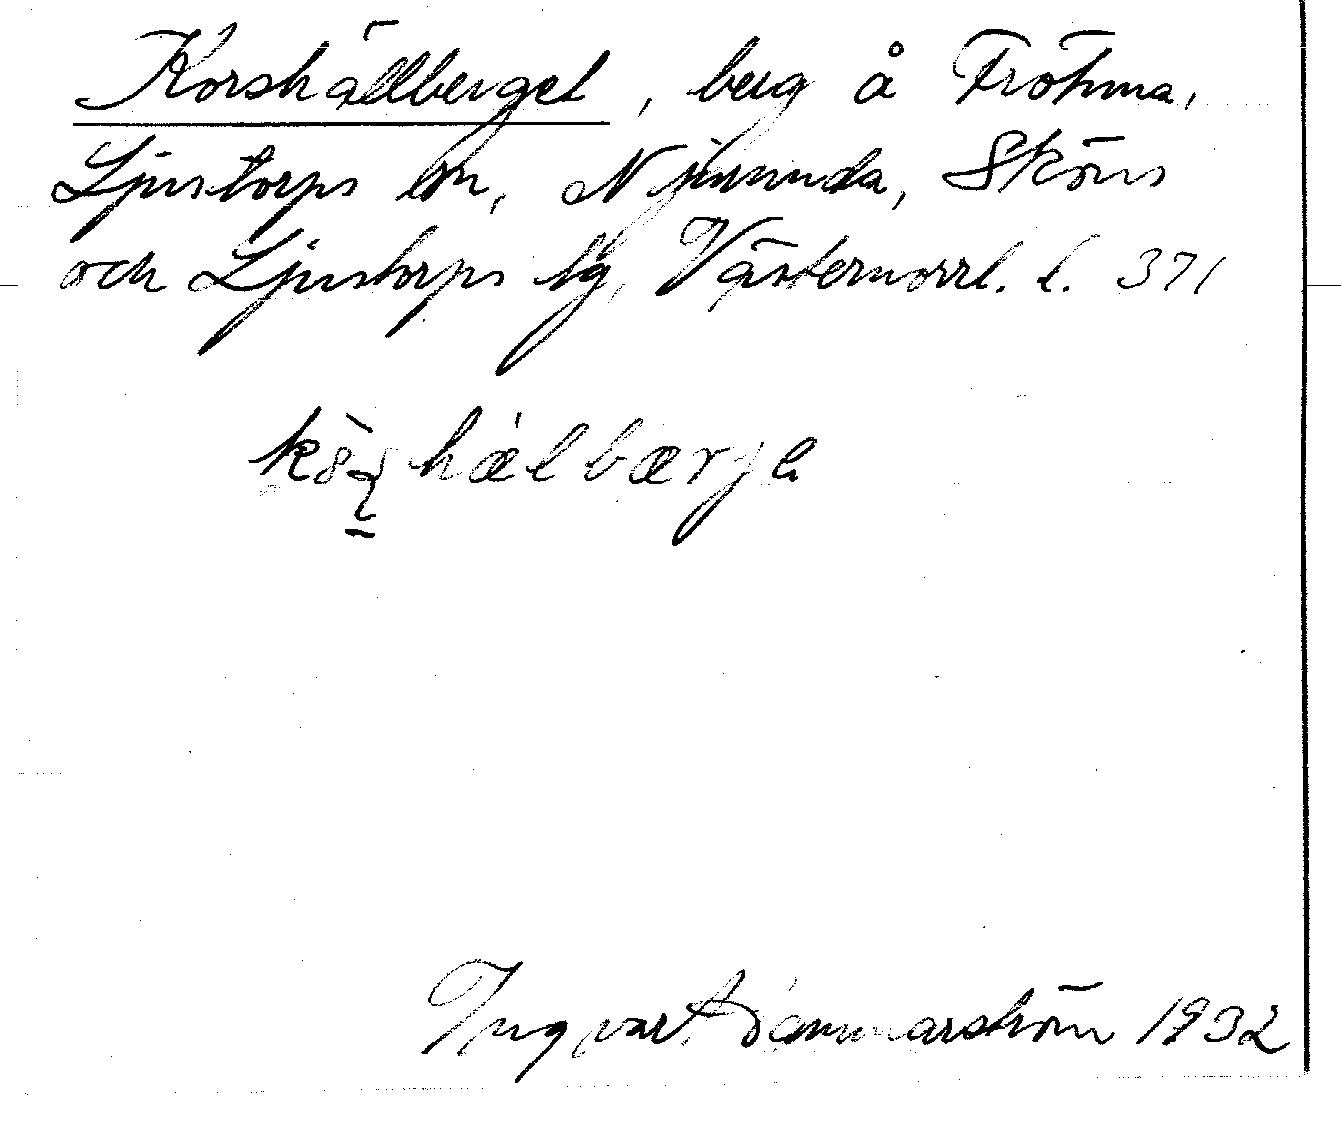 Korshällberget, berg å Fröhma,
Ljustorps sn, Njurunda, Sköns
och Ljustorps tg, Västernorrl. l. 371
Ingvar Hammarström 1932